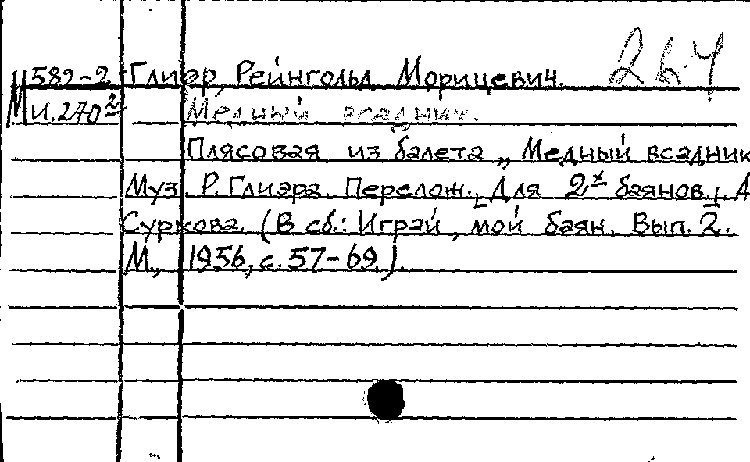 М 582-2 Глиэр, Рейнгольд Морицевич. 264
И.270² Медный всадник.
Плясовая из балета „Медный всадник
Муз. Р. Глиэра. Перелож. [для 2х баянов]. А
Суркова. (В сб.: Играй, мой баян. Вып. 2.
М., 1956, с. 57-69).